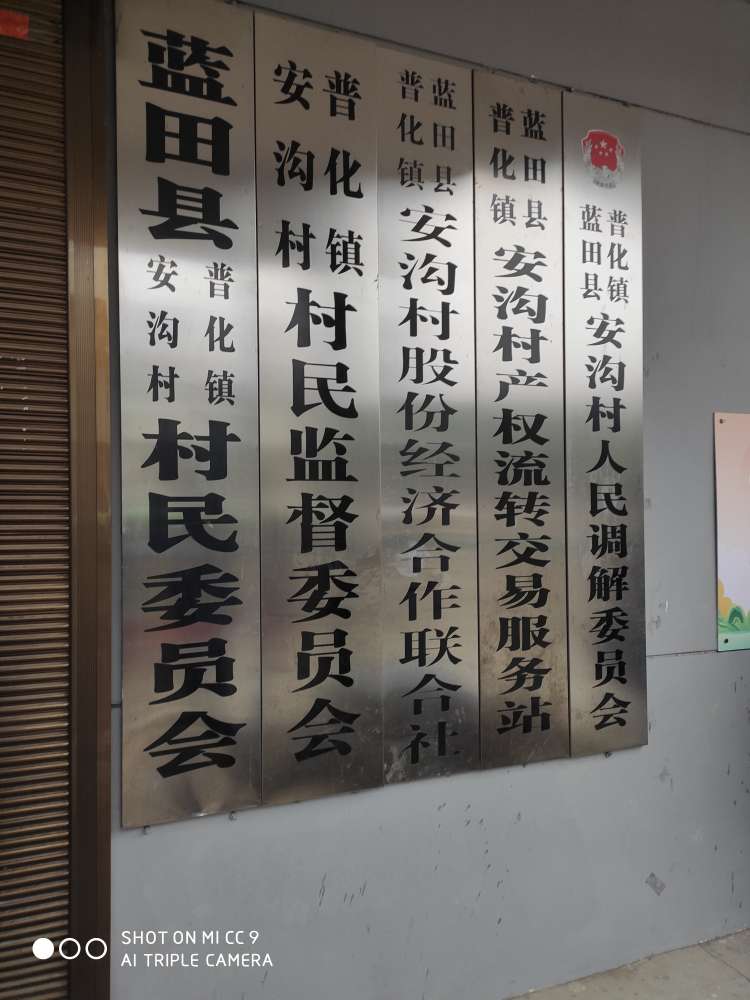 蓝田县普化镇安沟村村民委员会
普化镇安沟村村民监督委员会
蓝田县普化镇安沟村股份经济合作联合社
蓝田县普化镇安沟村产权流转交易服务站
普化镇蓝田县安沟村人民调解委员会
SHOT ON MI CC 9
AI TRIPLE CAMERA